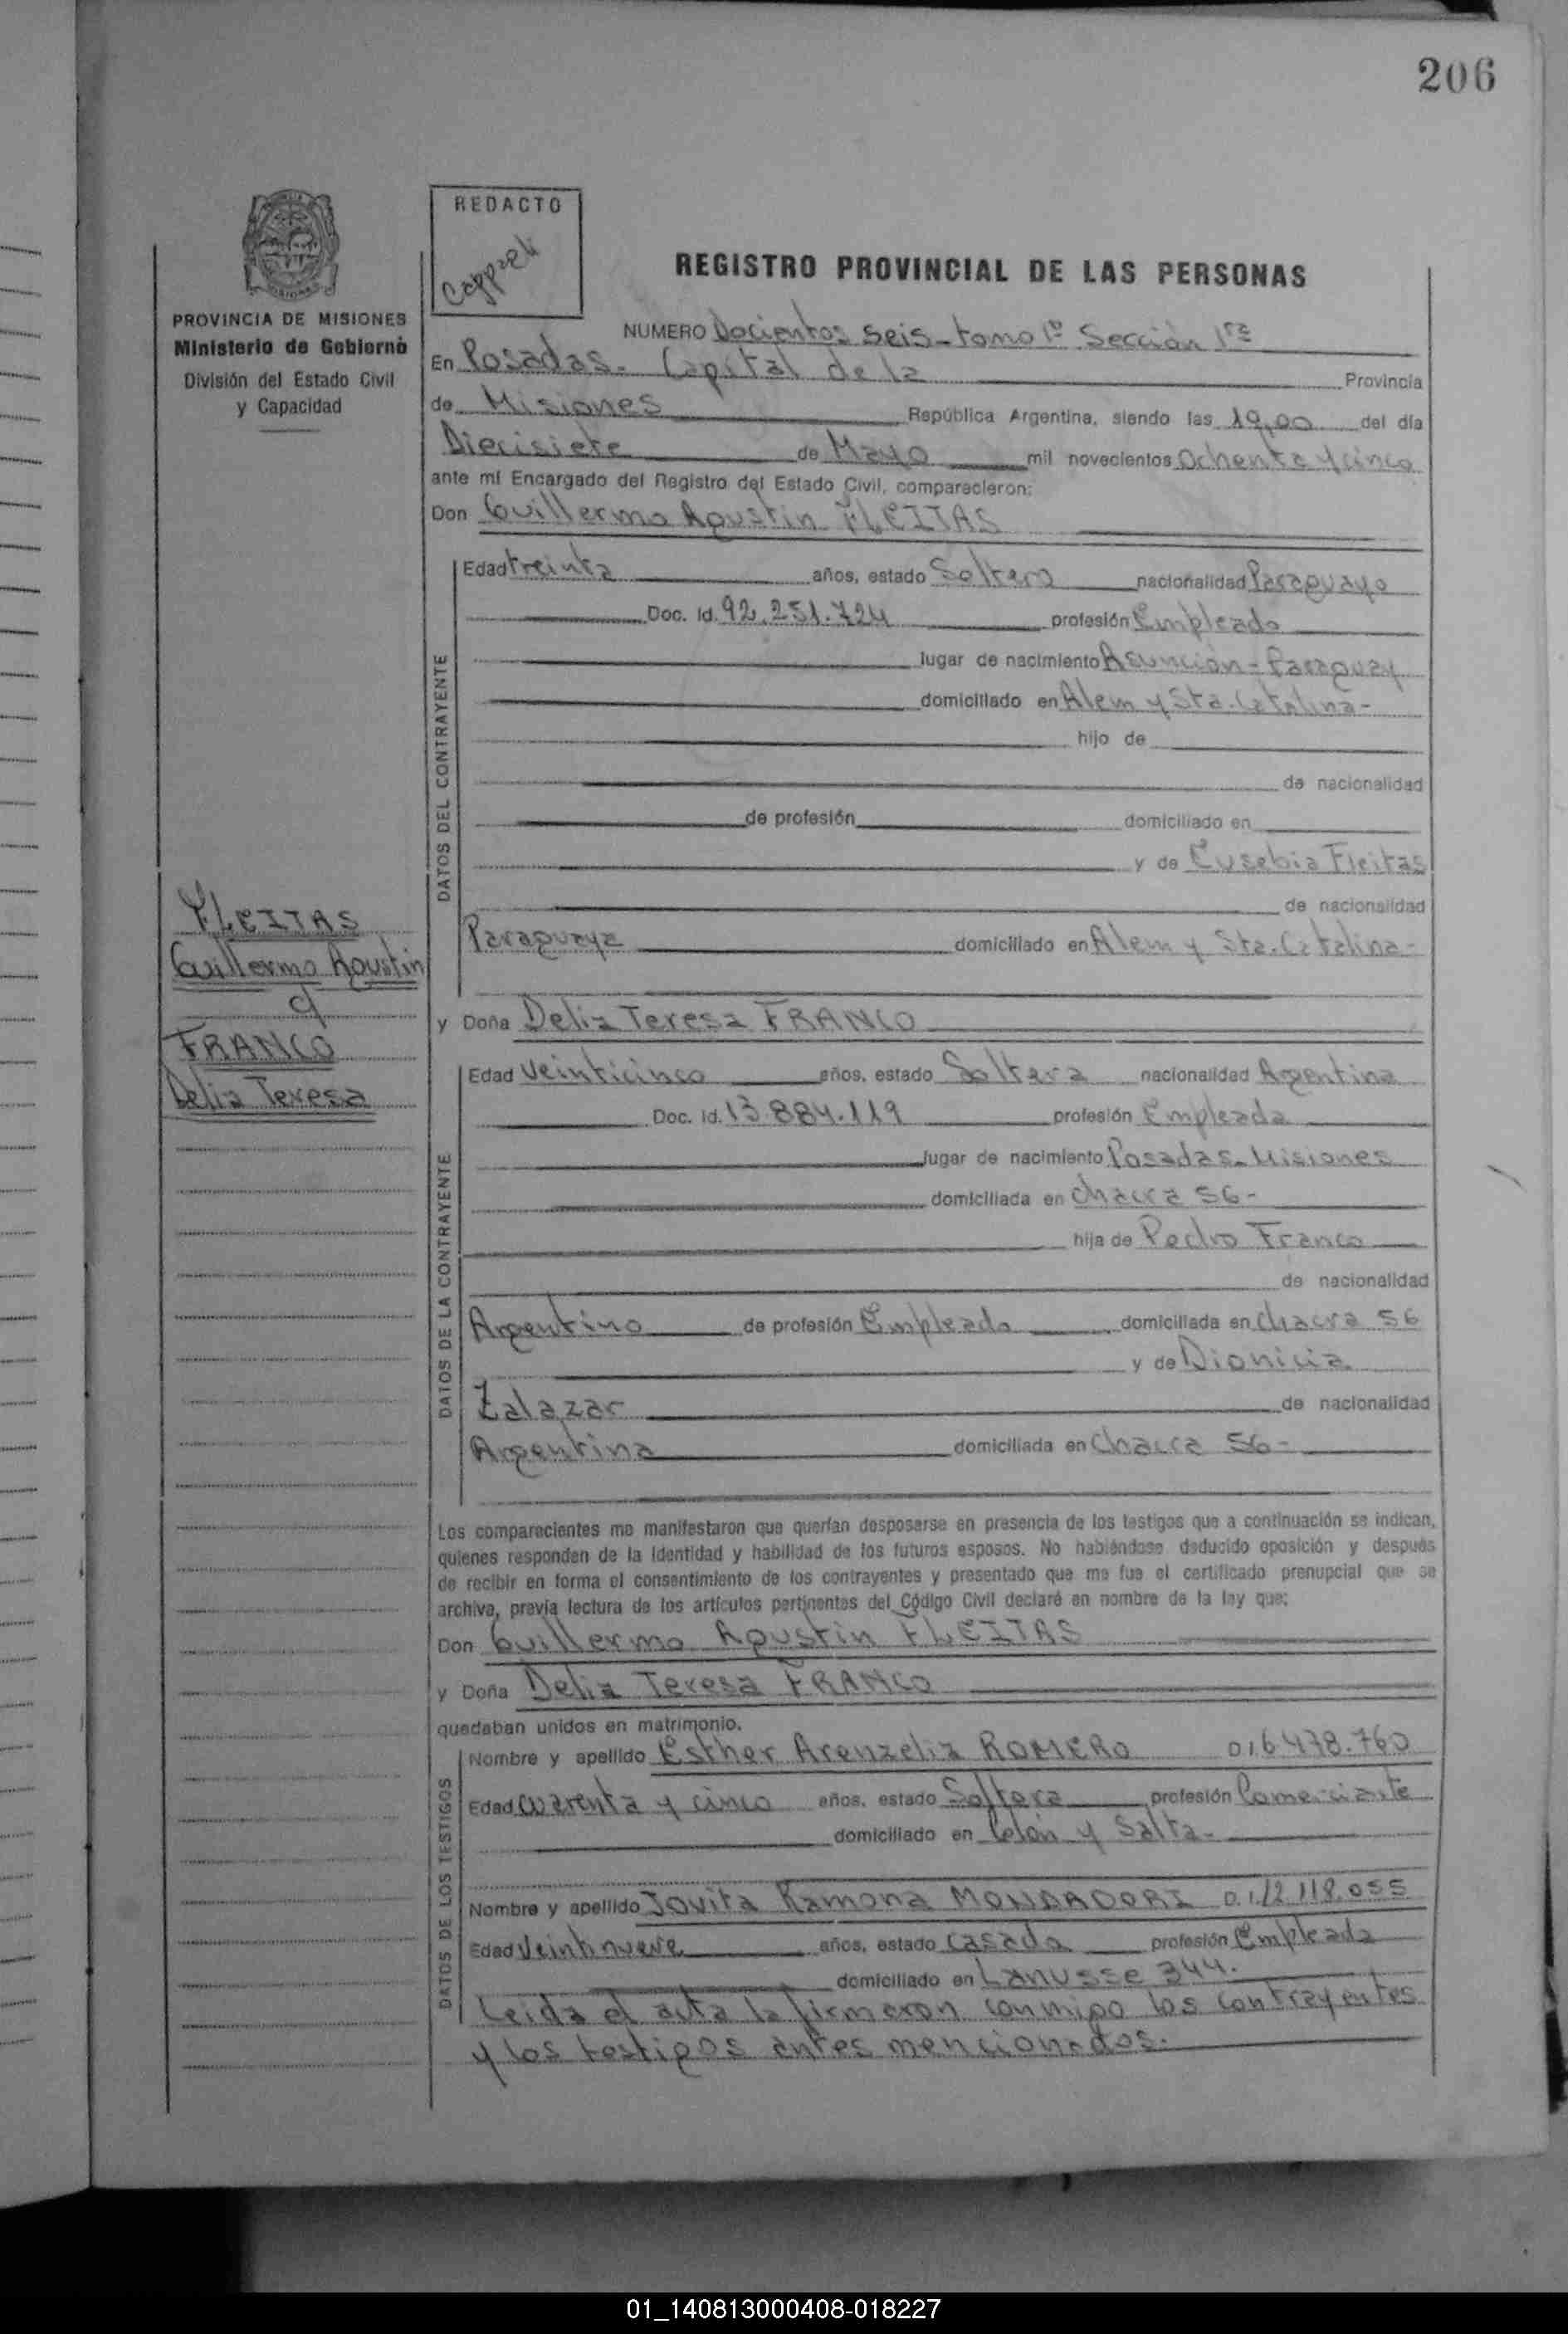 206
REDACTO
PROVINCIA DE MISIONES
Ministerio de Gobierno
División del Estado Civil
y Capacidad
REGISTRO PROVINCIAL DE LAS PERSONAS
NUMERO Docientos Seis - tomo 1º Sección 1ra
En Posadas. Capital de la Provincia
de Misiones República Argentina, siendo las 19,00 del día
Diecisiete de Mayo mil novecientos Ochenta y cinco
ante mí Encargado del Registro del Estado Civil, comparecieron:
Don Guillermo Agustin FLEITAS
DATOS DEL CONTRAYENTE
Edad treinta años, estado Soltero nacionalidad Paraguayo
Doc. Id. 92.251.724 profesión Empleado
lugar de nacimiento Asunción - Paraguay
domiciliado en Alem y Sta. Catalina -
hijo de
de nacionalidad
de profesión domiciliado en
y de Eusebia Fleitas
de nacionalidad
Paraguaya domiciliado en Alem y Sta. Catalina -
FLEITAS
Guillermo Agustin
c/
FRANCO
Delia Teresa
y Doña Delia Teresa FRANCO
DATOS DE LA CONTRAYENTE
Edad Veinticinco años, estado Soltera nacionalidad Argentina
Doc. Id. 13.884.119 profesión Empleada
lugar de nacimiento Posadas - Misiones
domiciliada en Chacra 56 -
hija de Pedro Franco
de nacionalidad
Argentino de profesión Empleado domiciliada en Chacra 56
y de Dionicia
Zalazar de nacionalidad
Argentina domiciliada en Chacra 56 -
Los comparecientes me manifestaron que querían desposarse en presencia de los testigos que a continuación se indican,
quienes responden de la identidad y habilidad de los futuros esposos. No habiéndose deducido oposición y después
de recibir en forma el consentimiento de los contrayentes y presentado que me fue el certificado prenupcial que se
archiva, previa lectura de los artículos pertinentes del Código Civil declaré en nombre de la ley que:
Don Guillermo Agustin FLEITAS
y Doña Delia Teresa FRANCO
quedaban unidos en matrimonio.
DATOS DE LOS TESTIGOS
Nombre y apellido Esther Arenzelia ROMERO 0,6.478.760
Edad Cuarenta y cinco años, estado Soltera profesión Comerciante
domiciliado en Colón y Salta -
Nombre y apellido Jovita Ramona MONDADORI D.I. 12.118.055
Edad Veintinueve años, estado Casada profesión Empleada
domiciliado en Lanusse 344.
Leida el acta la firmaron conmigo los contrayentes
y los testigos antes mencionados.
01_140813000408-018227